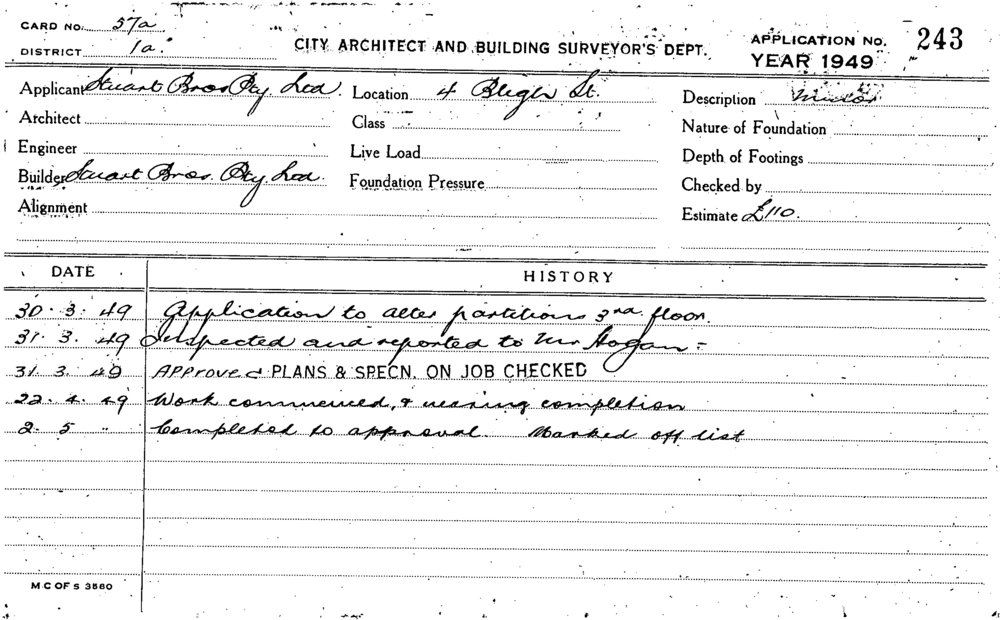 CARD NO. 57a
DISTRICT 1a.
CITY ARCHITECT AND BUILDING SURVEYOR'S DEPT.
APPLICATION NO. 243
YEAR 1949
Applicant Stuart Bros Pty. Ltd. Location 4 Bligh St. Description Minor
Architect Class Nature of Foundation
Engineer Live Load Depth of Footings
Builder Stuart Bros. Pty. Ltd. Foundation Pressure Checked by
Alignment Estimate £110.
DATE HISTORY
30. 3. 49 Application to alter partitions 3rd floor.
31. 3. 49 Inspected and reported to Mr Hogan -
31 3. 49 Approved PLANS & SPECN. ON JOB CHECKED
22. 4. 49 Work commenced, & nearing completion
2. 5 " Completed to approval. Marked off list
M.C OF S 3560